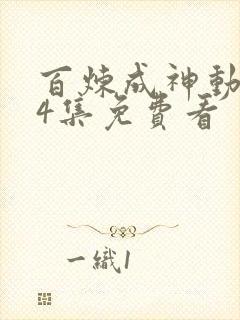 百炼成神動
4集免費看
一織1